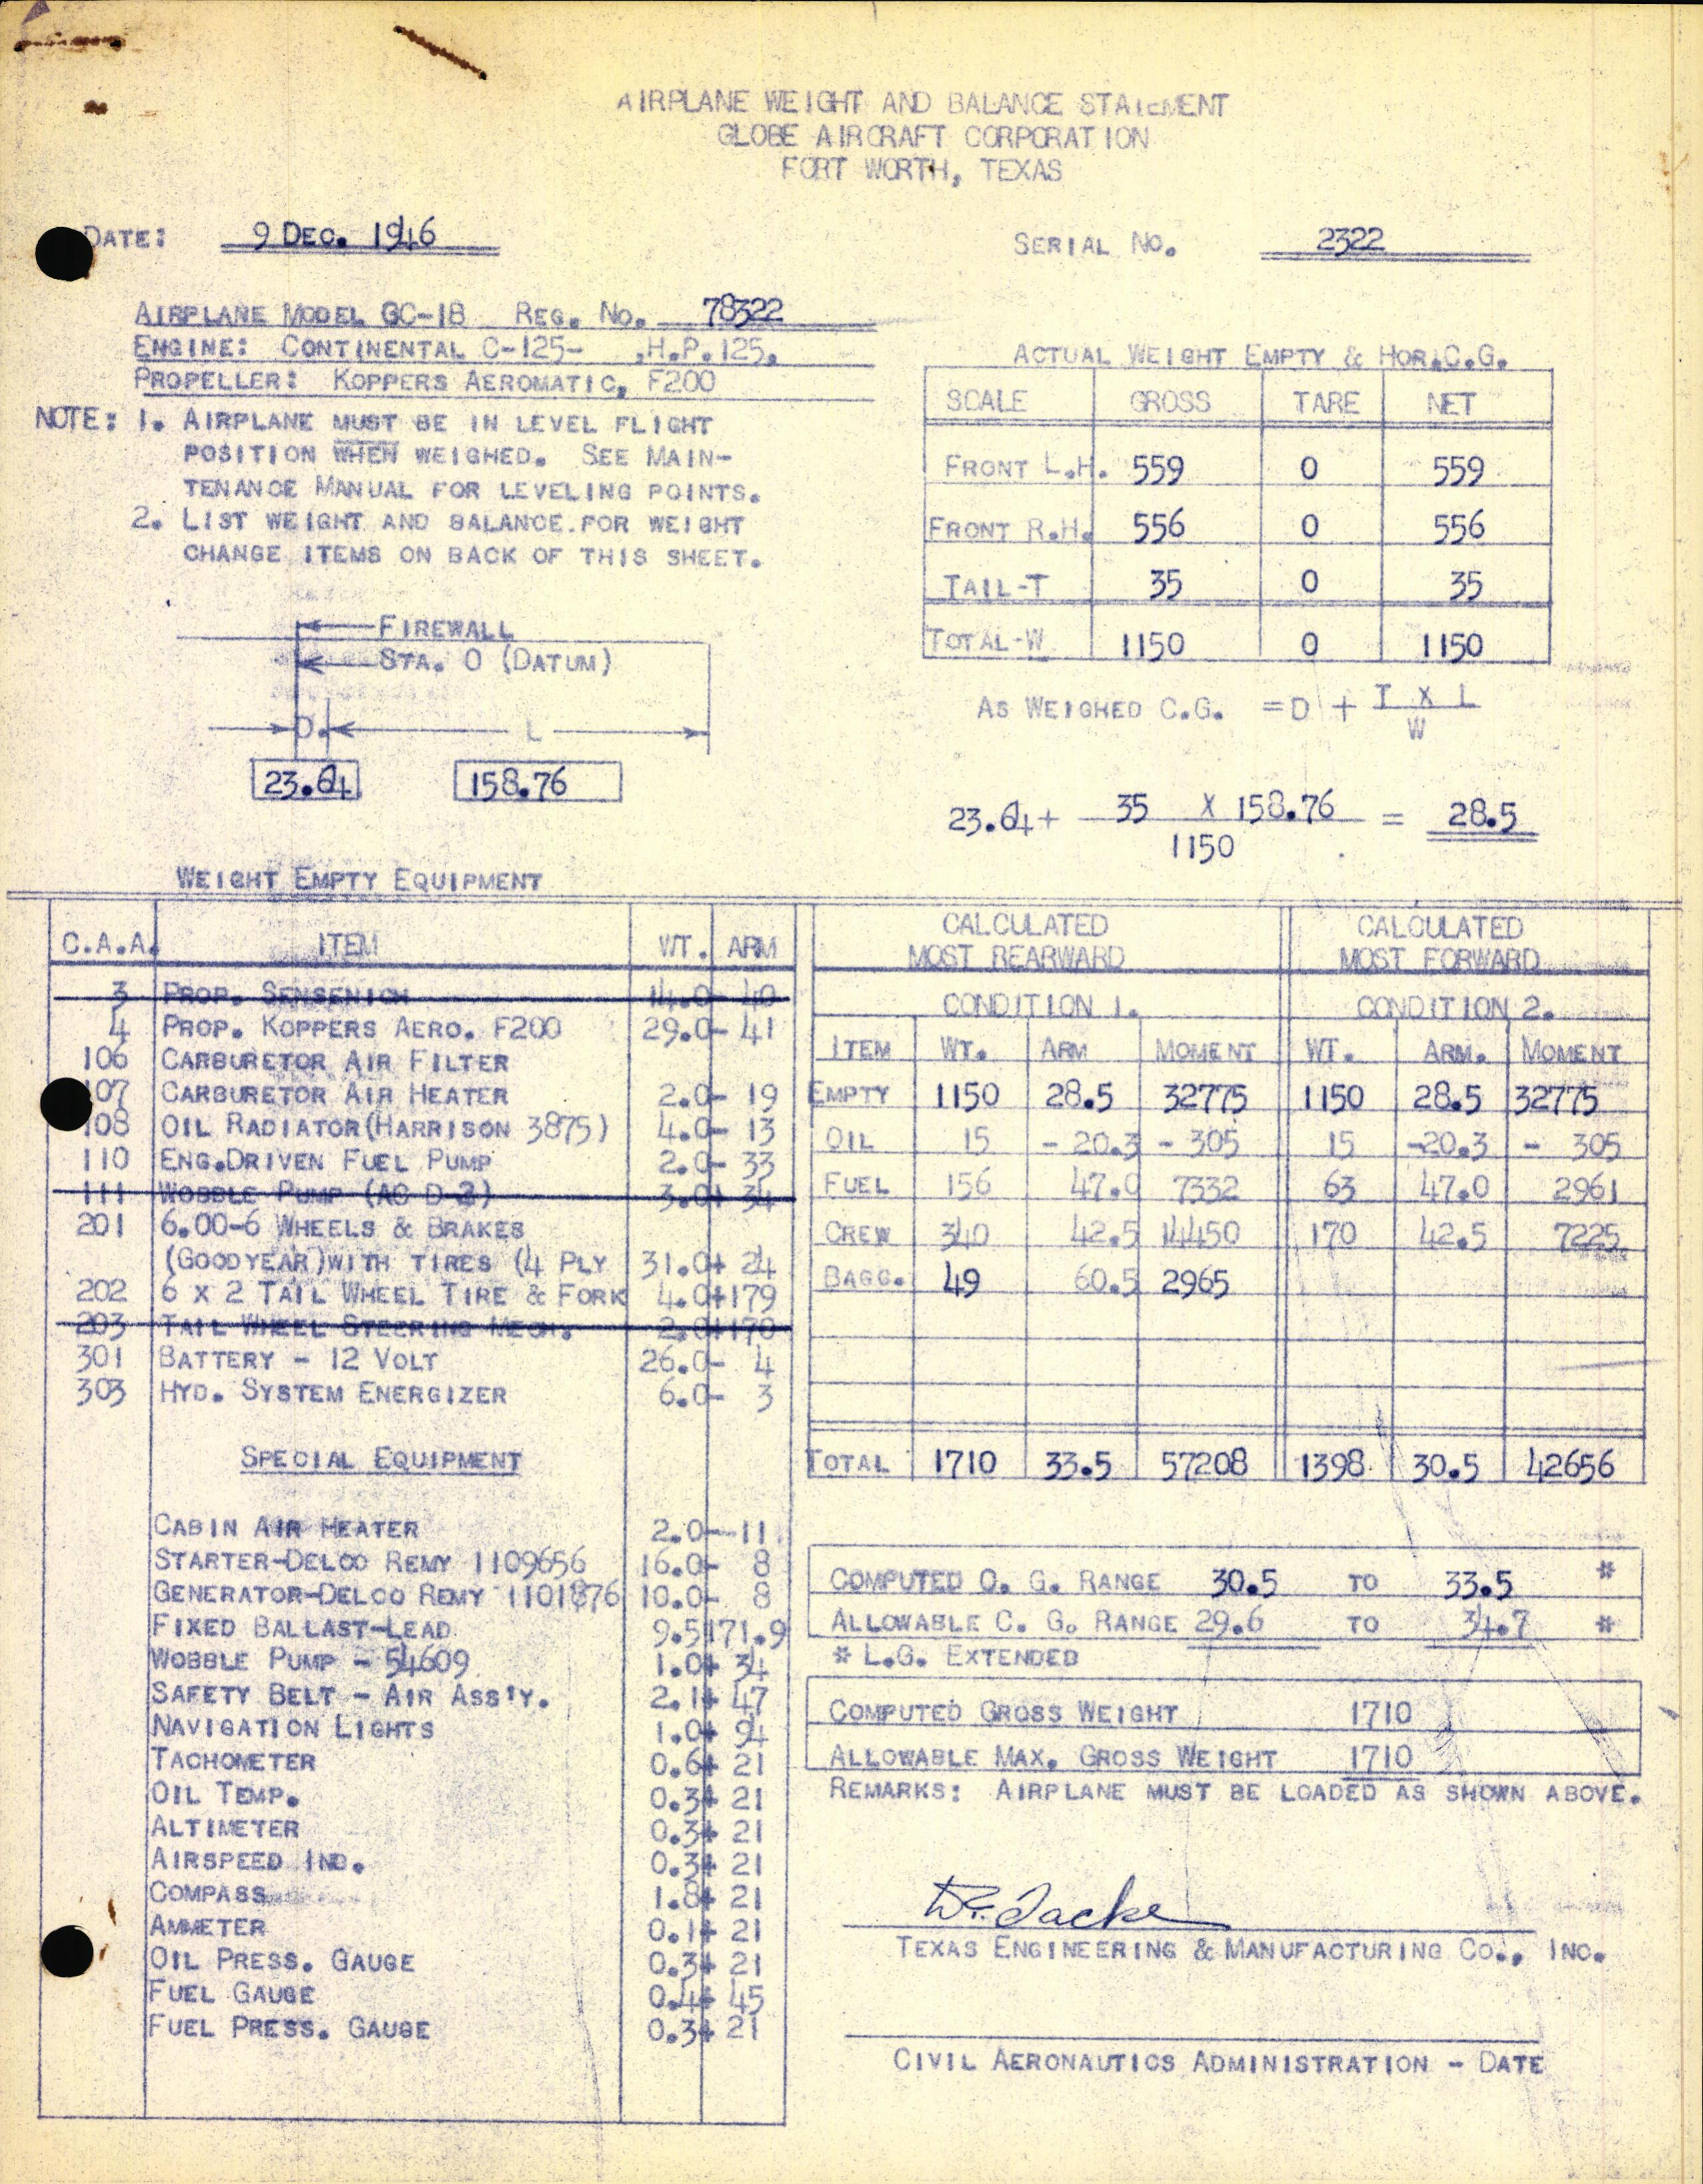 AIRPLANE WEIGHT AND BALANCE STATEMENT
GLOBE AIRCRAFT CORPORATION
FORT WORTH, TEXAS
DATE: 9 DEC. 1946
SERIAL NO. 2322
AIRPLANE MODEL GC-1B REG. NO. 78322
ENGINE: CONTINENTAL C-125- ,H.P.125,
PROPELLER: KOPPERS AEROMATIC, F200
NOTE: 1. AIRPLANE MUST BE IN LEVEL FLIGHT
POSITION WHEN WEIGHED. SEE MAIN-
TENANCE MANUAL FOR LEVELING POINTS.
2. LIST WEIGHT AND BALANCE FOR WEIGHT
CHANGE ITEMS ON BACK OF THIS SHEET.
FIREWALL
STA. 0 (DATUM)
D. L
23.64 158.76
ACTUAL WEIGHT EMPTY & HOR.C.G.
SCALE GROSS TARE NET
FRONT L.H. 559 0 559
FRONT R.H. 556 0 556
TAIL-T 35 0 35
TOTAL-W 1150 0 1150
AS WEIGHED C.G. =D + T X L
W
23.64+ 35 X 158.76 = 28.5
1150
WEIGHT EMPTY EQUIPMENT
C.A.A. ITEM WT. ARM
3 PROP. SENSENICH 14.0- 40
4 PROP. KOPPERS AERO. F200 29.0- 41
106 CARBURETOR AIR FILTER
107 CARBURETOR AIR HEATER 2.0- 19
108 OIL RADIATOR(HARRISON 3875) 4.0- 13
110 ENG.DRIVEN FUEL PUMP 2.0- 33
111 WOBBLE PUMP (AC D-2) 3.0+ 34
201 6.00-6 WHEELS & BRAKES
(GOODYEAR)WITH TIRES (4 PLY 31.0+ 24
202 6 X 2 TAIL WHEEL TIRE & FORK 4.0+179
203 TAIL WHEEL STEERING MECH. 2.0+170
301 BATTERY - 12 VOLT 26.0- 4
303 HYD. SYSTEM ENERGIZER 6.0- 3
SPECIAL EQUIPMENT
CABIN AIR HEATER 2.0--11
STARTER-DELCO REMY 1109656 16.0- 8
GENERATOR-DELCO REMY 1101876 10.0- 8
FIXED BALLAST-LEAD 9.5+171.9
WOBBLE PUMP - 54609 1.0+ 34
SAFETY BELT - AIR ASS'Y. 2.1+ 47
NAVIGATION LIGHTS 1.0+ 94
TACHOMETER 0.6+ 21
OIL TEMP. 0.3+ 21
ALTIMETER 0.3+ 21
AIRSPEED IND. 0.3+ 21
COMPASS 1.8+ 21
AMMETER 0.1+ 21
OIL PRESS. GAUGE 0.3+ 21
FUEL GAUGE 0.4+ 45
FUEL PRESS. GAUGE 0.3+ 21
CALCULATED CALCULATED
MOST REARWARD MOST FORWARD
CONDITION 1. CONDITION 2.
ITEM WT. ARM MOMENT WT. ARM. MOMENT
EMPTY 1150 28.5 32775 1150 28.5 32775
OIL 15 -20.3 - 305 15 -20.3 - 305
FUEL 156 47.0 7332 63 47.0 2961
CREW 340 42.5 14450 170 42.5 7225
BAGG. 49 60.5 2965
TOTAL 1710 33.5 57208 1398 30.5 42656
COMPUTED C. G. RANGE 30.5 TO 33.5 *
ALLOWABLE C. G. RANGE 29.6 TO 34.7 *
* L.G. EXTENDED
COMPUTED GROSS WEIGHT 1710
ALLOWABLE MAX. GROSS WEIGHT 1710
REMARKS: AIRPLANE MUST BE LOADED AS SHOWN ABOVE.
TEXAS ENGINEERING & MANUFACTURING CO., INC.
CIVIL AERONAUTICS ADMINISTRATION - DATE